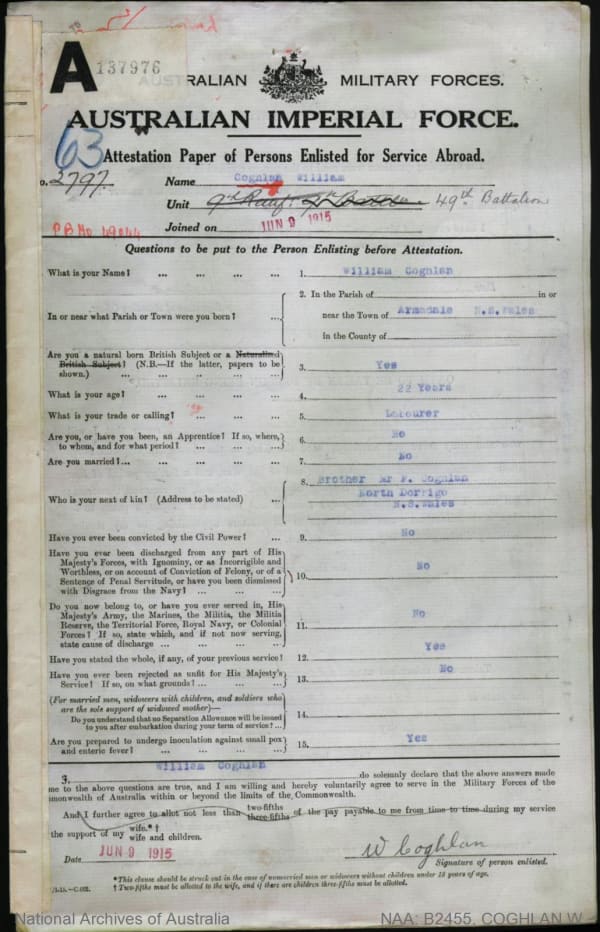 A
137976
AUSTRALIAN MILITARY FORCES.
AUSTRALIAN IMPERIAL FORCE.
63
Attestation Paper of Persons Enlisted for Service Abroad.
No. 2797. Name Coghlan William
Unit 49th Battalion
Joined on JUN 9 1915
Questions to be put to the Person Enlisting before Attestation.
What is your Name? ... ... ... ... 1. William Coghlan
2. In the Parish of in or
In or near what Parish or Town were you born? ... near the Town of Armadale N.S.Wales
in the County of
Are you a natural born British Subject or a Naturalized
British Subject? (N.B.—If the latter, papers to be
shown.) ... ... ... ... ... 3. Yes
What is your age? ... ... ... ... 4. 22 Years
What is your trade or calling? ... ... ... 5. Labourer
Are you, or have you been, an Apprentice? If so, where,
to whom, and for what period? ... ... ... 6. No
Are you married?... ... ... ... ... 7. No
8. Brother Mr P. Coghlan
Who is your next of kin? (Address to be stated) ... North Dorrigo
N.S.Wales
Have you ever been convicted by the Civil Power? ... 9. No
Have you ever been discharged from any part of His
Majesty's Forces, with Ignominy, or as Incorrigible and
Worthless, or on account of Conviction of Felony, or of a
Sentence of Penal Servitude, or have you been dismissed
with Disgrace from the Navy? ... ... ... 10. No
Do you now belong to, or have you ever served in, His
Majesty's Army, the Marines, the Militia, the Militia
Reserve, the Territorial Force, Royal Navy, or Colonial
Forces? If so, state which, and if not now serving,
state cause of discharge ... ... ... ... 11. No
Have you stated the whole, if any, of your previous service? 12. Yes
Have you ever been rejected as unfit for His Majesty's
Service? If so, on what grounds? ... ... ... 13. No
(For married men, widowers with children, and soldiers who
are the sole support of widowed mother)—
Do you understand that no Separation Allowance will be issued
to you after embarkation during your term of service? ... 14.
Are you prepared to undergo inoculation against small pox
and enteric fever? ... ... ... ... 15. Yes
I, William Coghlan do solemnly declare that the above answers made
me to the above questions are true, and I am willing and hereby voluntarily agree to serve in the Military Forces of the
mmonwealth of Australia within or beyond the limits of the Commonwealth.
And I further agree to allot not less than two-fifths three-fifths of the pay payable to me from time to time during my service
the support of my wife.*† wife and children.
Date JUN 9 1915 W Coghlan
Signature of person enlisted.
* This clause should be struck out in the case of unmarried men or widowers without children under 18 years of age.
† Two-fifths must be allotted to the wife, and if there are children three-fifths must be allotted.
National Archives of Australia NAA: B2455, COGHLAN W